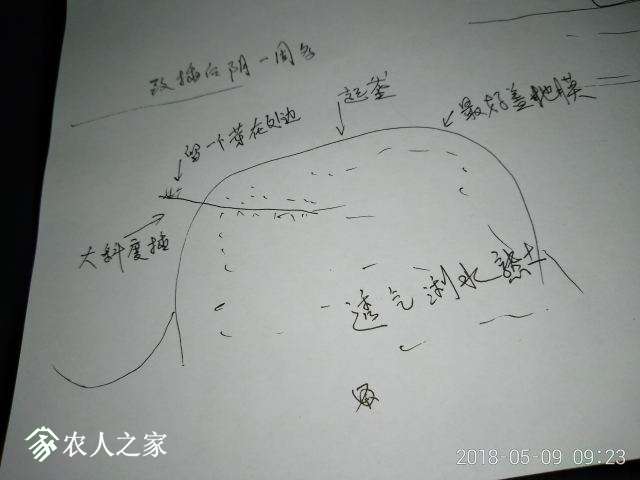 改插后阴一周多
起垄
最好盖地膜
留一个芽在外边
大斜度插
透气淌水熟土
农人之家
2018-05-09 09:23